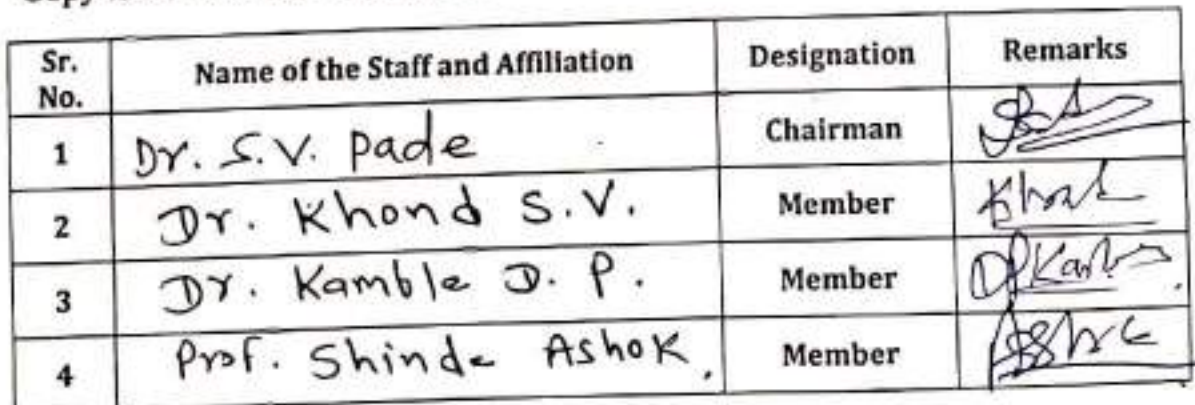 Sr. No. Name of the Staff and Affiliation Designation Remarks
1 Dr. S.V. Pade Chairman
2 Dr. Khond S.V. Member
3 Dr. Kamble D. P. Member
4 Prof. Shinde Ashok. Member